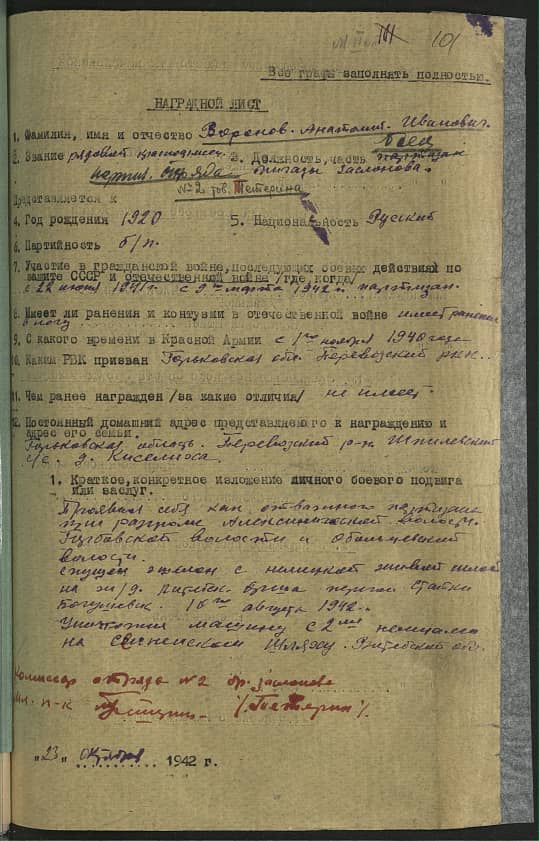 101
Все графы заполнять полностью.
НАГРАДНОЙ ЛИСТ
1. Фамилия, имя и отчество Воронов Анатолий Иванович.
2. Звание рядовой красноармеец 3. Должность, часть боец
партиз. отряда бригады Заслонова.
№2 тов. Тетерина
Представляется к
4. Год рождения 1920 5. Национальность Русский
6. Партийность б/п.
7. Участие в гражданской войне, последующих боевых действиях по
защите СССР и отечественной войне /где, когда/
с 22 июня 1941г. с 9го марта 1942г. партизан.
8. Имеет ли ранения и контузии в отечественной войне имеет ранение
в ногу
9. С какого времени в Красной Армии с 1го ноября 1940 года
10. Каким РВК призван Горьковская обл. Перевозский РВК.
11. Чем ранее награжден /за какие отличия/ не имеет.
12. Постоянный домашний адрес представляемого к награждению и
адрес его семьи.
Горьковская область. Перевозский р-н Шпилевский
с/с. д. Киселиха
1. Краткое, конкретное изложение личного боевого подвига
или заслуг.
Проявил себя как отважного партизана
при разгроме Алексиничской волости.
волости и Обольцевской
волости.
спущен эшелон с немецкой живой силой
на ж/д. Витебск-Орша перегон станки
Богушевск. 16го августа 1942г.
Уничтожил машину с 2мя немцами
на Сенненском шляху. Витебской обл.
Комиссар отряда №2 бр. Заслонова
мл. п-к /Тетерин/.
"23" октября 1942 г.